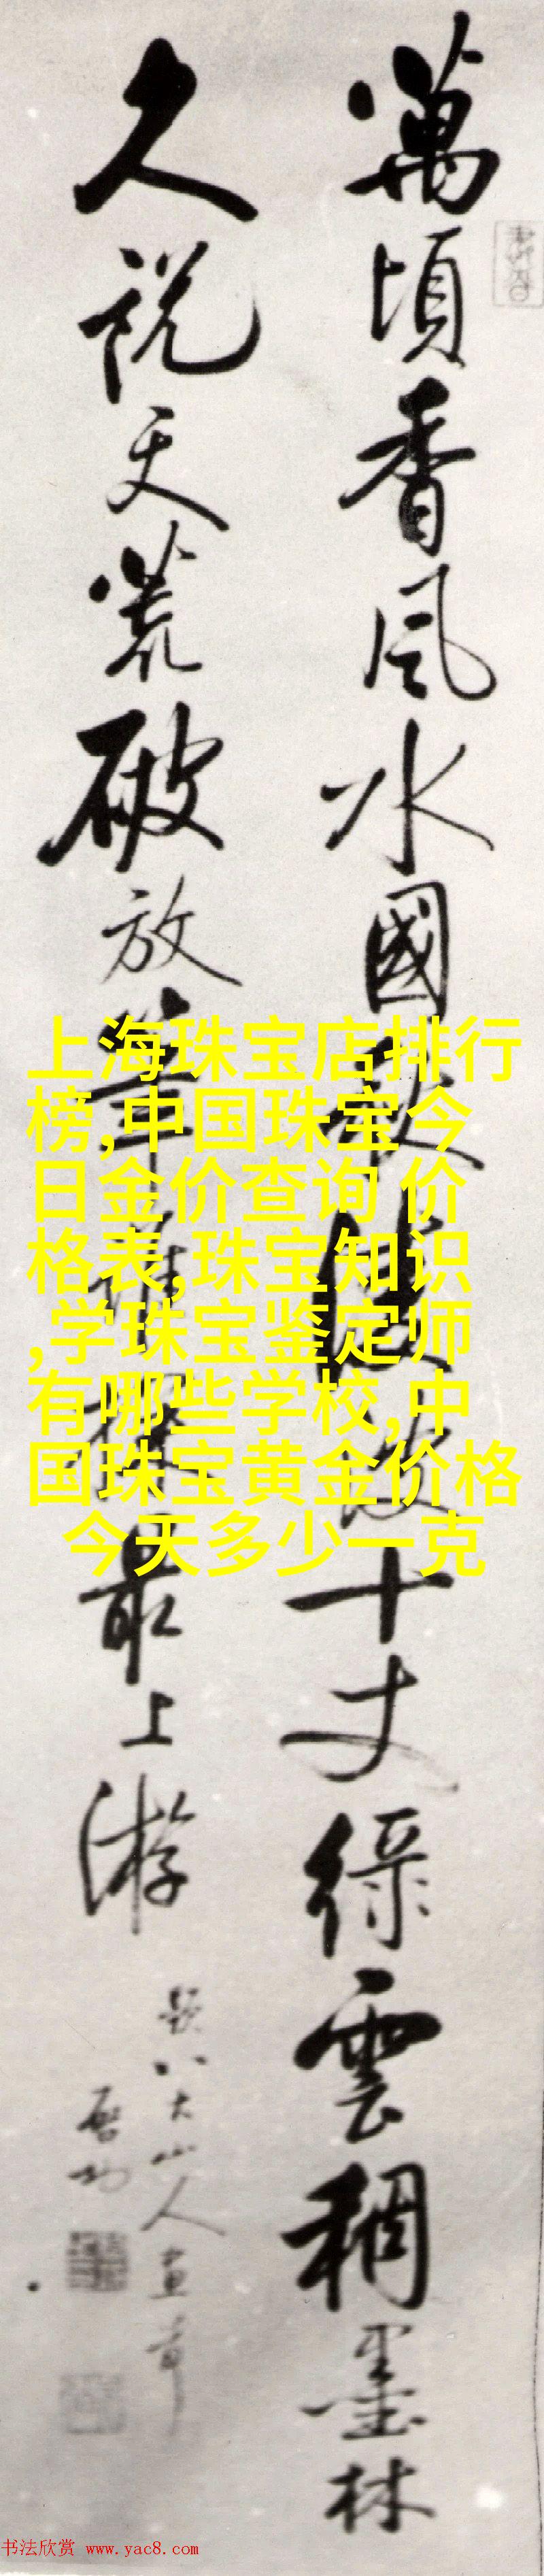 萬頃香風水國秋波十丈綠雲稠墨林
久説天荒破放筆誰最上游
題八大山人畫荷
啓功
上海珠宝店排行
榜,中国珠宝今
日金价查询 价
格表,珠宝知识
,学珠宝鉴定师
有哪些学校,中
国珠宝黄金价格
今天多少一克
书法欣赏 www.yac8.com